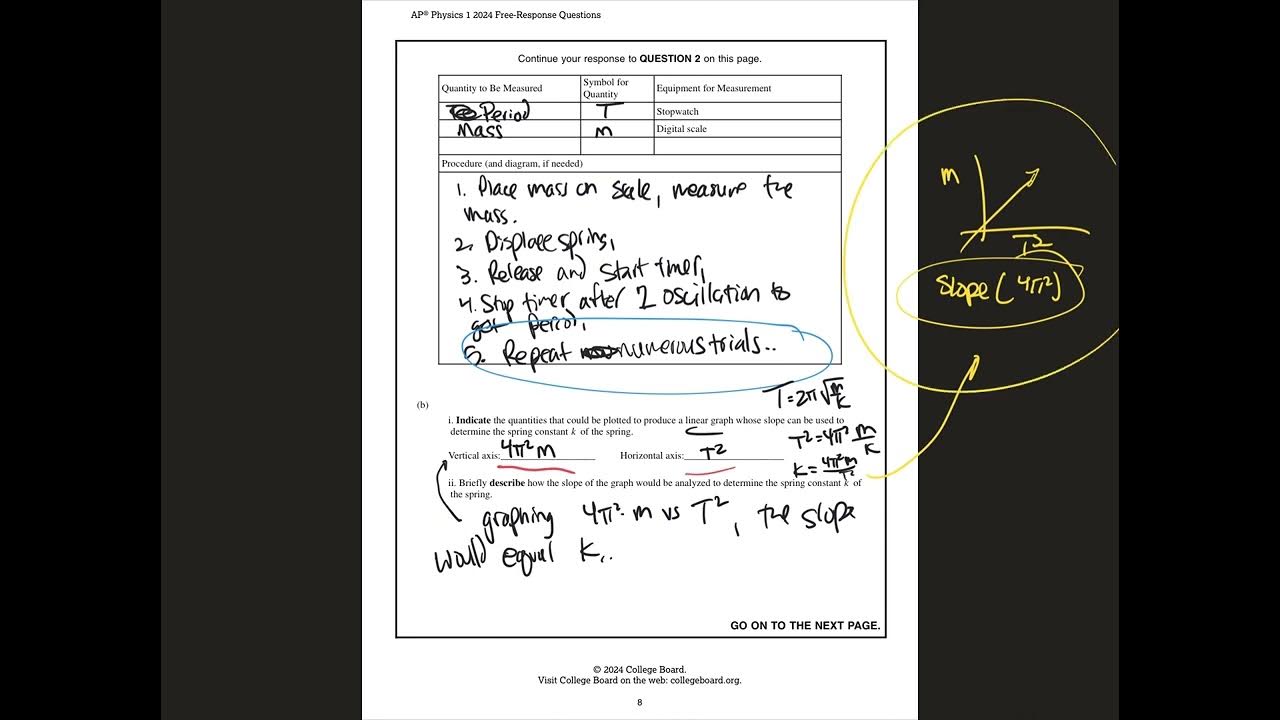 AP® Physics 1 2024 Free-Response Questions
Continue your response to QUESTION 2 on this page.
Quantity to Be Measured
Symbol for
Quantity
Equipment for Measurement
Period T Stopwatch
Mass m Digital scale
Procedure (and diagram, if needed)
1. Place mass on scale, measure the
mass.
2. Displace spring.
3. Release and start timer.
4. Stop timer after 1 oscillation to
get period.
5. Repeat numerous trials..
m
T²
slope (4π²)
T=2π√m/k
(b)
i. Indicate the quantities that could be plotted to produce a linear graph whose slope can be used to
determine the spring constant k of the spring.
T²=4π² m/k
Vertical axis: 4π² m Horizontal axis: T²
k = 4π²m/T²
ii. Briefly describe how the slope of the graph would be analyzed to determine the spring constant k of
the spring.
graphing 4π²·m vs T², the slope
would equal k..
GO ON TO THE NEXT PAGE.
© 2024 College Board.
Visit College Board on the web: collegeboard.org.
8